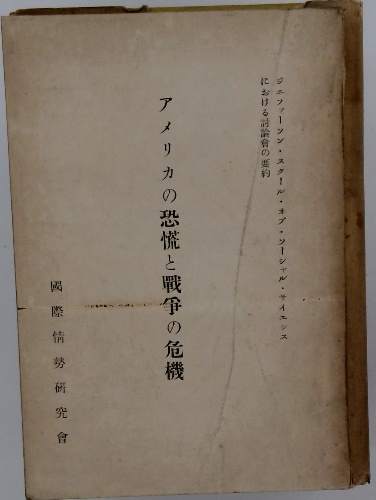 ジエフアーソン・スクール・オブ・ソーシャル・サイエンス
における討論會の要約
アメリカの恐慌と戰爭の危機
國際情勢硏究會